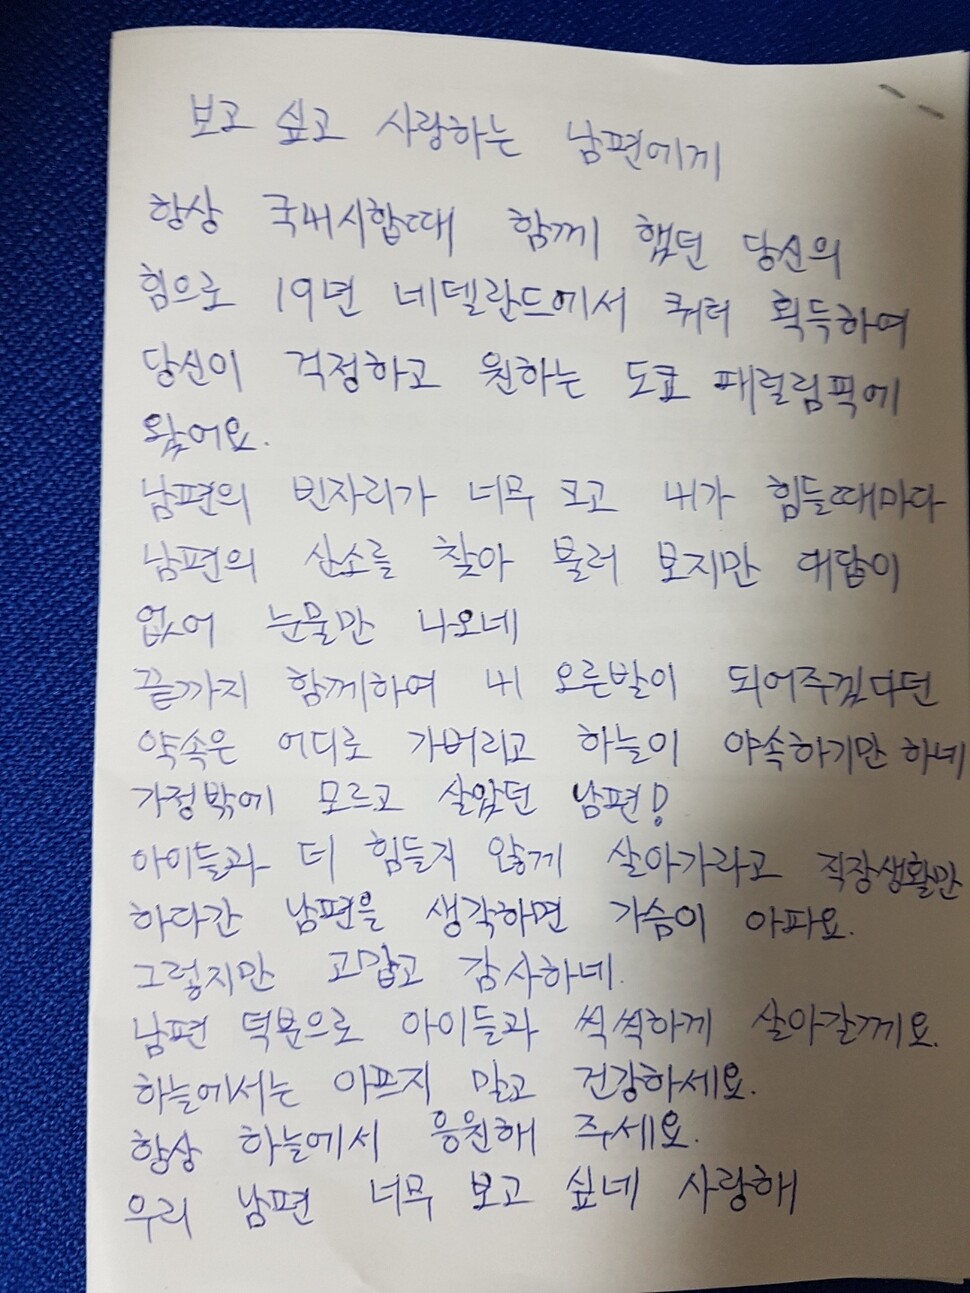 보고 싶고 사랑하는 남편에게
항상 국내시합때 함께 했던 당신의
힘으로 19년 네델란드에서 쿼터 획득하여
당신이 걱정하고 원하는 도쿄 패럴림픽에
왔어요.
남편의 빈자리가 너무 크고 내가 힘들때마다
남편의 산소를 찾아 불러 보지만 대답이
없어 눈물만 나오네
끝까지 함께하여 내 오른발이 되어주겠다던
약속은 어디로 가버리고 하늘이 야속하기만 하네
가정밖에 모르고 살았던 남편!
아이들과 더 힘들지 않게 살아가라고 직장생활만
하다간 남편을 생각하면 가슴이 아파요.
그렇지만 고맙고 감사하네.
남편 덕분으로 아이들과 씩씩하게 살아갈께요.
하늘에서는 아프지 말고 건강하세요.
항상 하늘에서 응원해 주세요.
우리 남편 너무 보고 싶네 사랑해